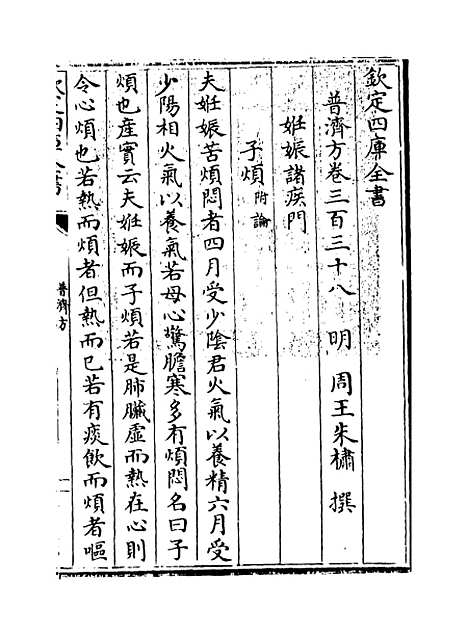 欽定四庫全書
普濟方卷三百三十八　明　周王朱橚　撰
妊娠諸疾門
子煩附論
夫妊娠苦煩悶者四月受少陰君火氣以養精六月受
少陽相火氣以養氣若母心驚膽寒多有煩悶名曰子
煩也産實云夫妊娠而子煩若是肺臟虛而熱在心則
令心煩也若熱而煩者但熱而已若有痰飲而煩者嘔
普濟方